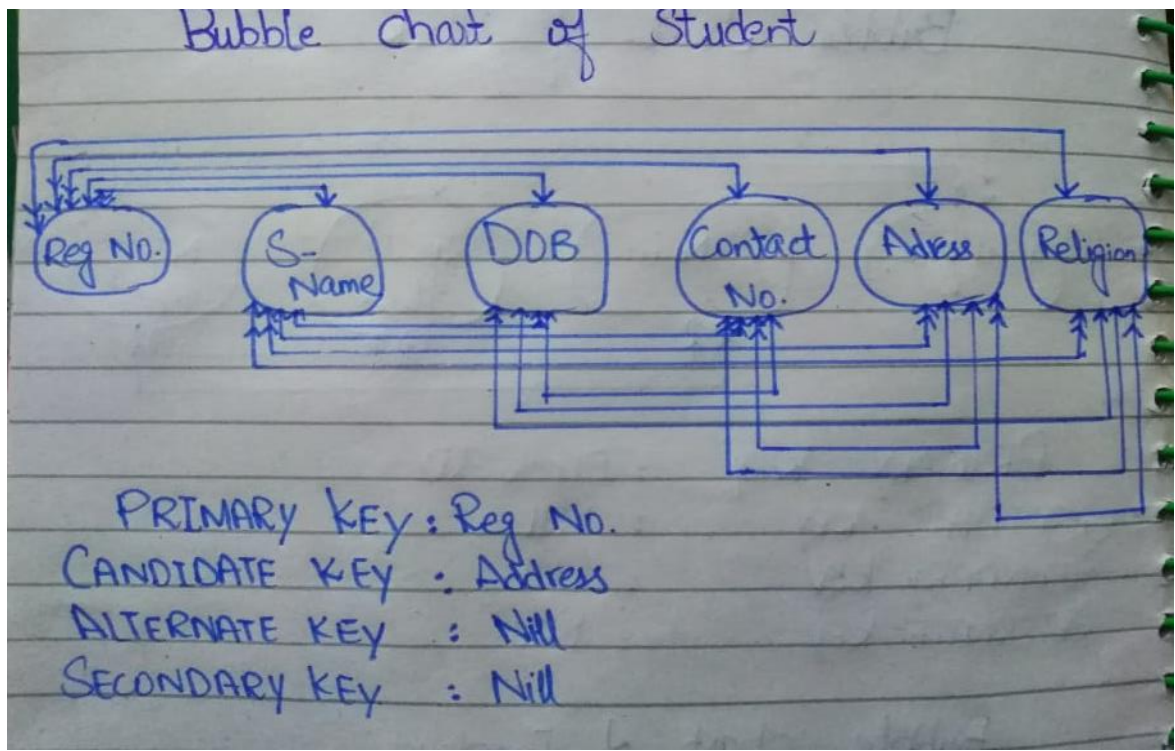 Bubble Chart of Student
Reg No.
S-
Name
DOB
Contact
No.
Adress
Religion
PRIMARY KEY : Reg No.
CANDIDATE KEY : Address
ALTERNATE KEY : Nill
SECONDARY KEY : Nill